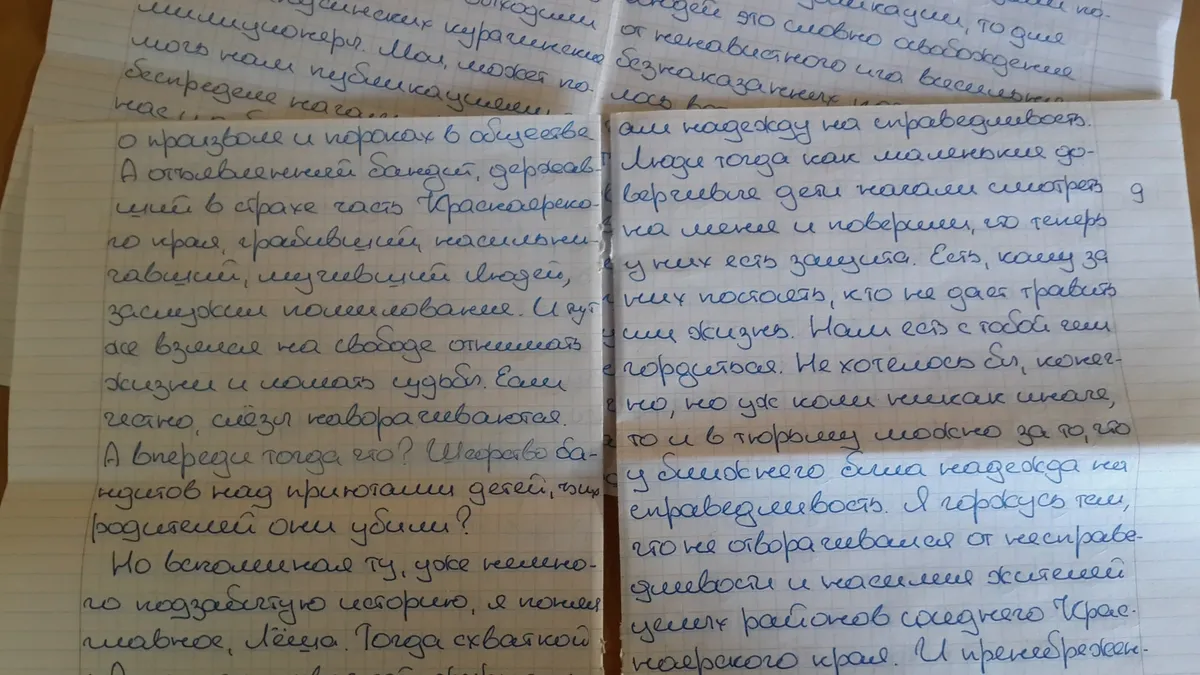 курагинские
милиционеры. Мол, может по-
мочь нам публикациями
беспределе
о произволе и пороках в обществе
А отъявленный бандит, державший
ший в страхе часть Красноярско-
го края, грабивший, насильни-
чавший, мучивший людей,
заслужил помилование. И тут
же взялся на свободе отнимать
жизни и ломать судьбы. Если
честно, слёзы наворачиваются.
А впереди тогда что? Шефство ба-
ндитов над приютами детей, чьих
родителей они убили?
Но вспоминая ту, уже немно-
го подзабытую историю, я понял
главное, Лёша. Тогда схваткой
то для
людей это словно освобождение
от ненавистного ига всесильных
безнаказанных
лось
али надежду на справедливость.
Люди тогда как маленькие до-
верчивые дети начали смотреть
9
на меня и поверили, что теперь
у них есть защита. Есть, кому за
них постоять, кто не даст травить
им жизнь. Нам есть с тобой чем
гордиться. Не хотелось бы, конеч-
но, но уж коли никак иначе,
то и в тюрьму можно за то, что
у ближнего была надежда на
справедливость. Я горжусь тем,
что не отворачивался от несправе-
дливости и насилия жителей
целых районов среднего Крас-
ноярского края. И пренебрежен-